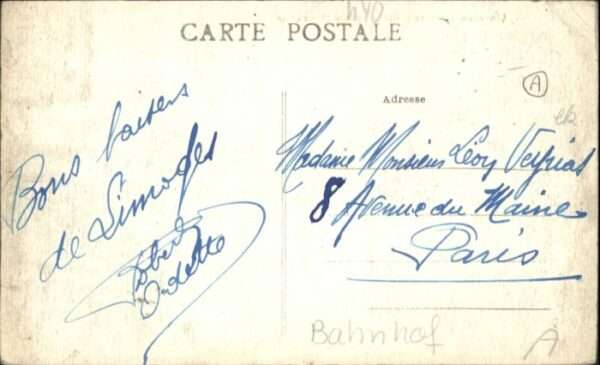 440
CARTE POSTALE
A
Adresse
Bons baisers
de Limoges
Robert
Odette
Madame Monsieur Léon Veyriat
8 Avenue du Maine
Paris
Bahnhof
A